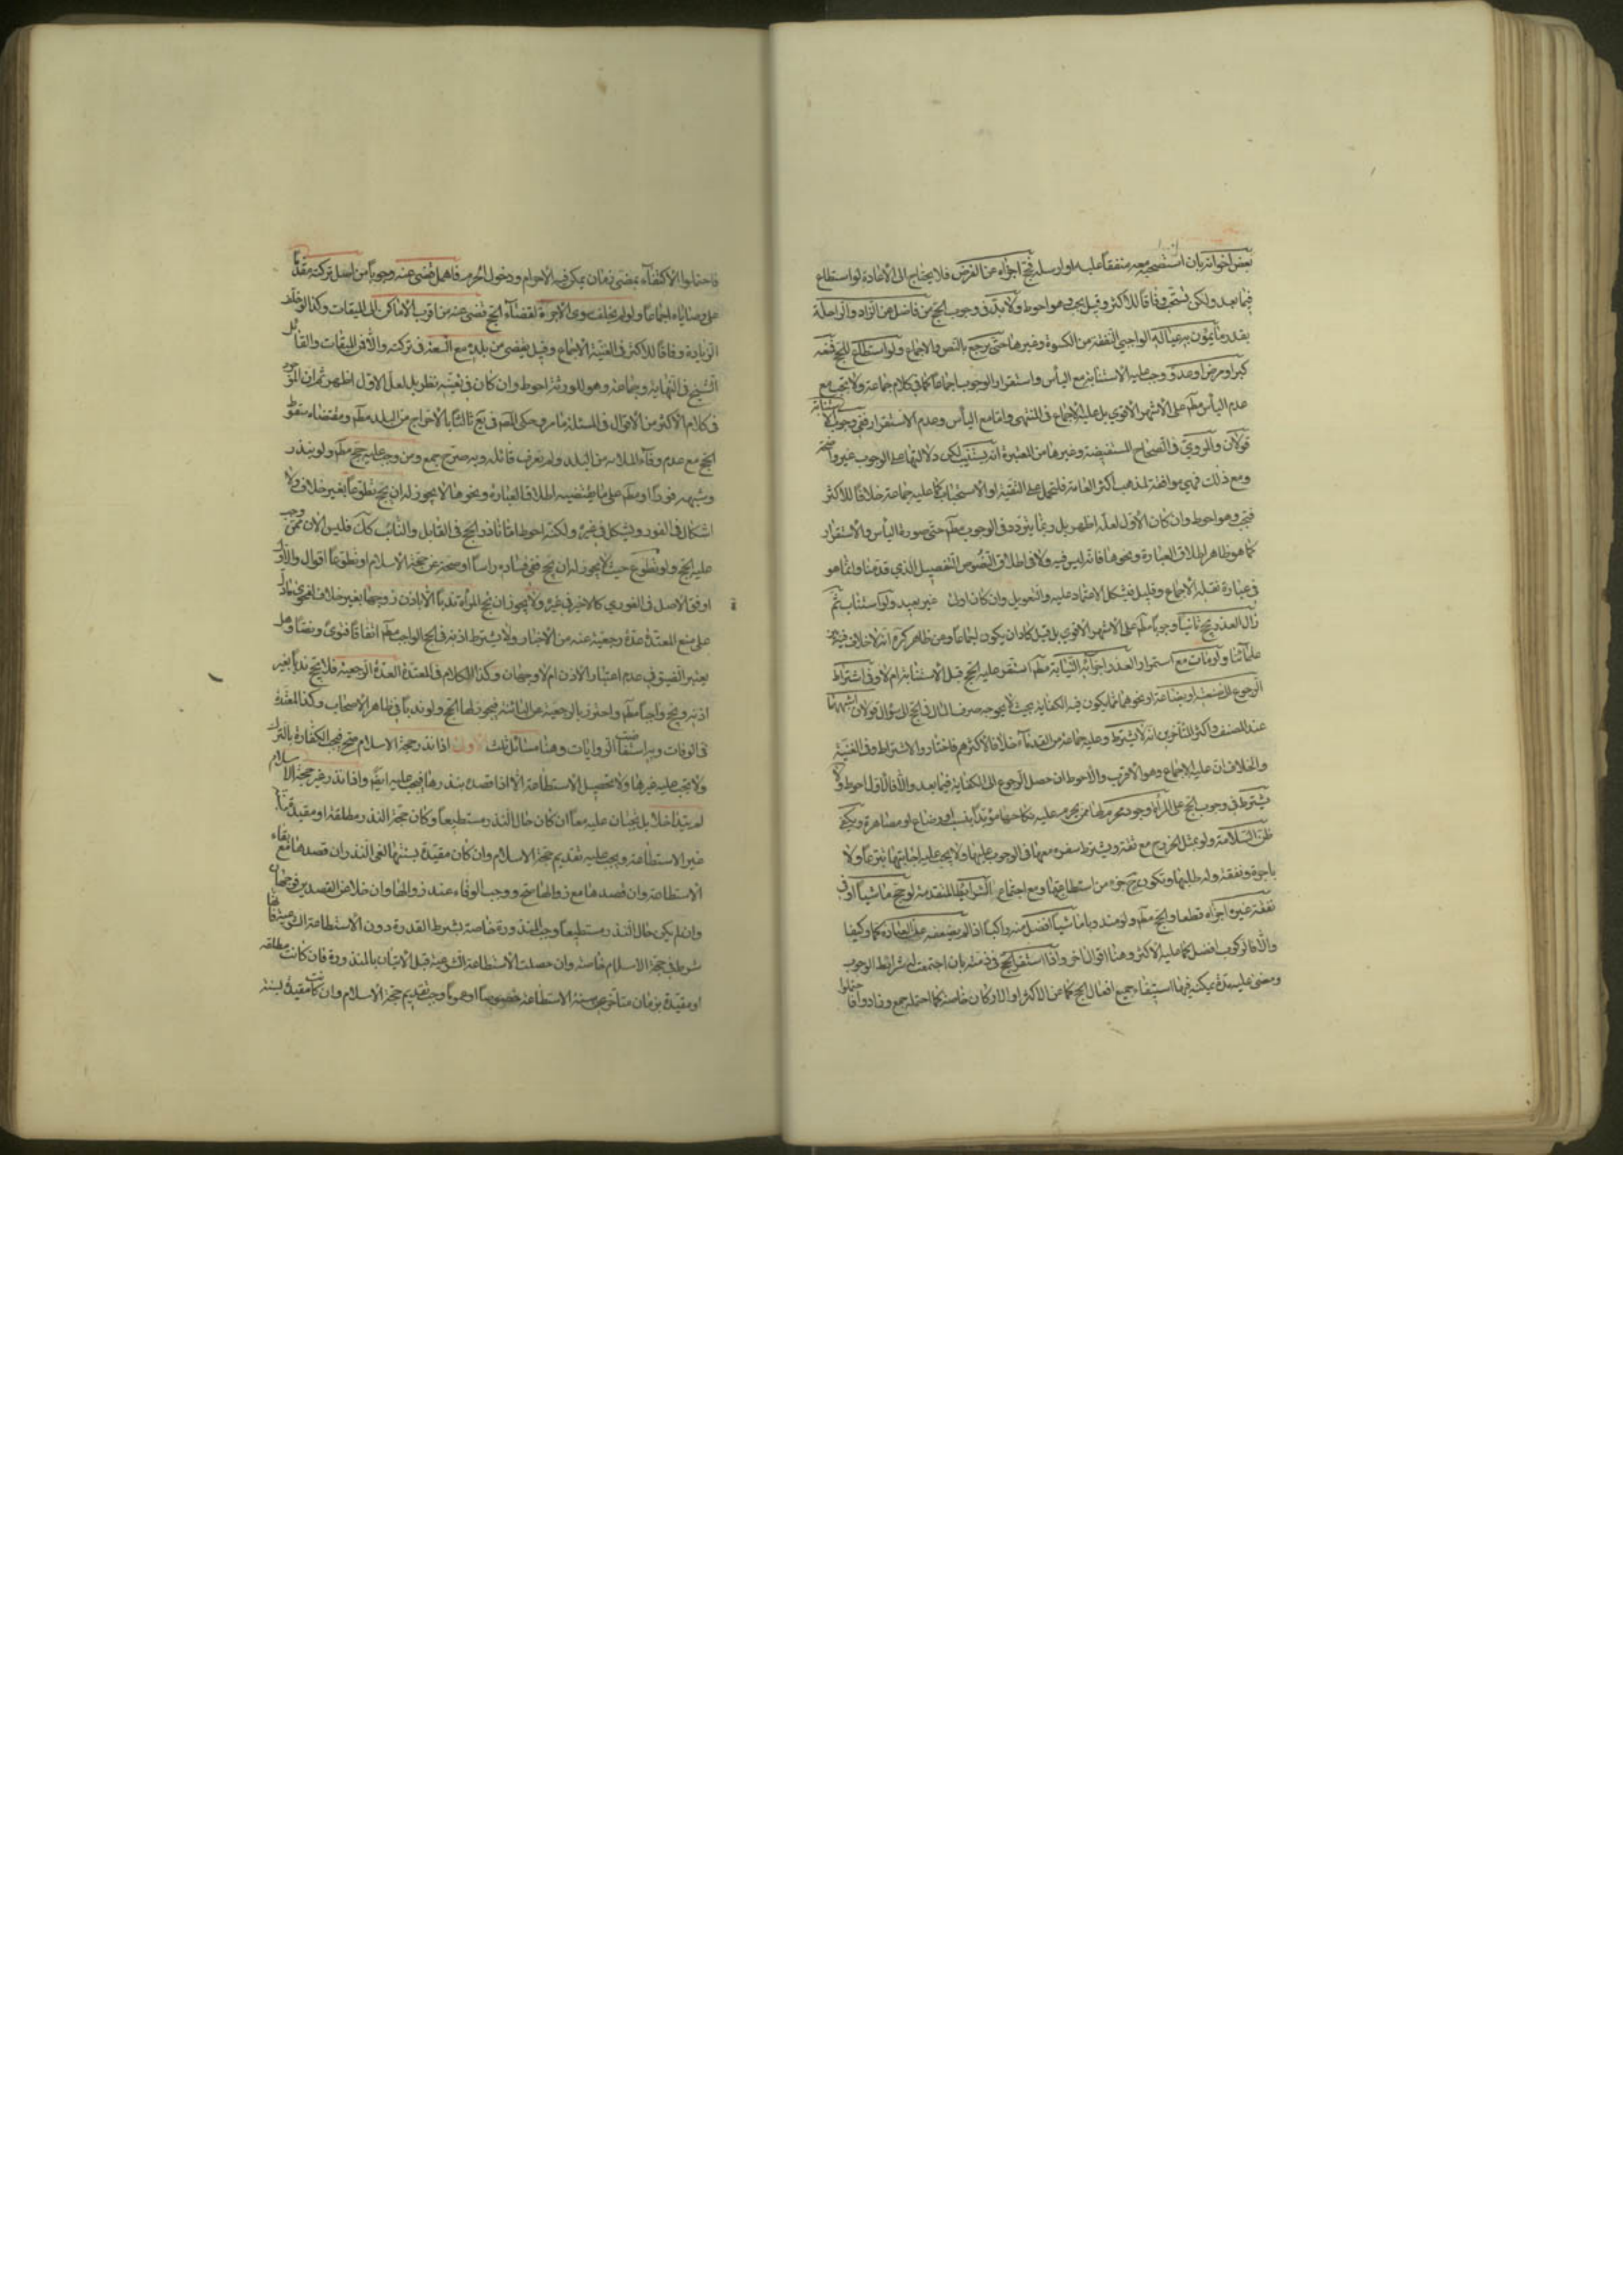 بعض اخوانه بان استصحبه معه منفقا عليه او ارسله فحج اجزاه عن الفرض فلا يحتاج الى الاعادة لو استطاع
فيما بعد ولكن يستحب وفاقا للاكثر وقيل يجب وهو احوط ولا بد في وجوب الحج من فاضل عن الزاد والراحلة
بقدر ما يمون به عياله الواجبي النفقة من الكسوة وغيرها حتى يرجع بالنص والاجماع ولو استطاع للحج فمنعه
كبر او مرض او عدو وجب عليه الاستنابة مع اليأس واستقرار الوجوب اجماعا كما في كلام جماعة ولا يجب مع
عدم اليأس مطم على الاشهر الاقوى بل عليه الاجماع في المنتهى واما مع اليأس وعدم الاستقرار ففي وجوب الاستنابة
قولان والمروي في الصحاح المستفيضة وغيرها من المعتبرة انه يستنيب لكن دلالتها على الوجوب غير واضحة
ومع ذلك فهي موافقة لمذهب اكثر العامة فلتحمل على التقية او الاستحباب كما عليه جماعة خلافا للاكثر
فيجب وهو احوط وان كان الاول لعله اظهر بل ربما يتردد في الوجوب مطم حتى صورة اليأس والاستقرار
كما هو ظاهر اطلاق العبارة ونحوها فانه ليس فيه ولا في اطلاق النصوص التفصيل الذي قدمنا وانما هو
في عبارة نقلة الاجماع وقليل فيشكل الاعتماد عليه والتعويل وان كان اول غير بعيد ولو استناب ثم
زال العذر حج ثانيا وجوبا مطم على الاشهر الاقوى بل قيل كاد ان يكون اجماعا ومن ظاهر كره انه لا خلاف فيه بين
علمائنا ولو مات مع استمرار العذر اجزائه النيابة مطم استقر عليه الحج قبل الاستنابة ام لا وفي اشتراط
الرجوع الى صنعة او بضاعة او نحوهما مما يكون فيه الكفاية بحيث لا يحوجه صرف المال في الحج الى سؤال قولان اشبههما
عند المصنف واكثر المتأخرين انه لا يشترط وعليه جماعة من القدماء خلافا لاكثرهم فاختاروا الاشتراط وفي الغنية
والخلاف ان عليه الاجماع وهو الاقرب والاحوط ان حصل الرجوع الى الكفاية فيما بعد والا فالاول احوط ولا
يشترط في وجوب الحج على المرأة وجود محرم لها ممن يحرم عليه نكاحها مؤبدا بنسب او رضاع او مصاهرة ويكفي
ظن السلامة ولو بمثل الخروج مع ثقة ويشترط سفره معها في الوجوب عليها ولا يجب عليه اجابتها تبرعا ولا
باجرة ونفقة وله طلبها وتكون ح جزء من استطاعتها ومع اجتماع الشرايط المتقدمة لو حج ماشيا او في
نفقة غيره اجزاه قطعا والحج مطم ولو مندوبا ماشيا افضل منه راكبا اذا لم يضعفه عن العبادة كما وكيفا
والا فالركوب افضل كما عليه الاكثر وهنا اقوال اخر واذا استقر الحج في ذمته بان اجتمعت له شرائط الوجوب
ومضى عليه مدة يمكنه فيها استيفاء جميع افعال الحج كما عن الاكثر او الاركان خاصة كما احتمله جمع وزادوا فاحتملوا
فاحتملوا الاكتفاء بمضي زمان يمكن فيه الاحرام ودخول الحرم فاهمل قضي عنه وجوبا من اصل تركته مقدما
على وصاياه اجماعا ولو لم يخلف سوى الاجرة لقضاء الحج قضي عنه من اقرب الاماكن الى الميقات وكذا لو خلف
الزيادة وفاقا للاكثر وفي الغنية الاجماع وقيل يقضى من بلده مع السعة في تركته والا فمن الميقات والقائل
الشيخ في النهاية وجماعة وهو للورثة احوط وان كان في تعينه نظر بل لعل الاول اظهر ثم ان الموجود
في كلام الاكثر من الاقوال في المسئلة ما مر وحكى المصنف في يع ثالثا بالاخراج من البلد مطم ومقتضاه سقوط
الحج مع عدم وفاء المال به من البلد ولم نعرف قائله وبه صرح جمع ومن وجب عليه حج مطم ولو بنذر
وشبهه فورا او مطم على ما يقتضيه اطلاق العبارة ونحوها لا يجوز له ان يحج تطوعا بغير خلاف ولا
اشكال في الفور ويشكل في غيره ولكنه احوط فاذا نذر الحج في القابل والنائب كك فليس لان ممن وجب
عليه الحج ولو تطوع حيث لا يجوز له ان يحج ففي فساده راسا او صحته عن حجة الاسلام او تطوعا اقوال والاول
اوفق الاصل في الفوري كالاخير في غيره ولا يجوز ان تحج المرأة ندبا الا باذن زوجها بغير خلاف
على منع المعتدة عدة رجعية عنه من الاخبار ولا يشترط اذنه في الحج الواجب مطم اتفاقا فتوى ونصا وهل
يعتبر الضيق في عدم اعتبار الاذن ام لا وجهان وكذا الكلام في المعتدة العدة الرجعية فلا تحج ندبا بغير
اذنه وتحج واجبا مطم واحترز بالرجعية عن البائنة فيجوز لها الحج ولو ندبا في ظاهر الاصحاب وكذا المعتدة
في الوفات وبه استفاضت الروايات وهنا مسائل ثلث الاولى اذا نذر حجة الاسلام صح فيجب الكفارة بالترك
ولا يجب عليه غيرها ولا تحصيل الاستطاعة الا اذا قصده بنذرها فيجب عليه ايضا واذا نذر غير حجة الاسلام
لم يتداخلا بل تجبان عليه معا ان كان حال النذر مستطيعا وكان حجة النذر مطلقة او مقيدة
غير الاستطاعة ويجب عليه تقديم حجة الاسلام وان كان مقيدة بسنتها لغى النذر ان قصدها مع بقاء
الاستطاعة وان قصدها مع زوالها صح ووجب الوفاء عند زوالها وان خلا عن القصدين فوجهان
وان لم يكن حال النذر مستطيعا وجب المنذورة خاصة بشرط القدرة دون الاستطاعة الشرعية فانها
شرط في حجة الاسلام خاصة وان حصلت الاستطاعة الشرعية قبل الاتيان بالمنذورة فان كانت مطلقة
او مقيدة بزمان متأخر عن سنة الاستطاعة خصوصا او عموما وجب تقديم حجة الاسلام وان كانت مقيدة بسنة